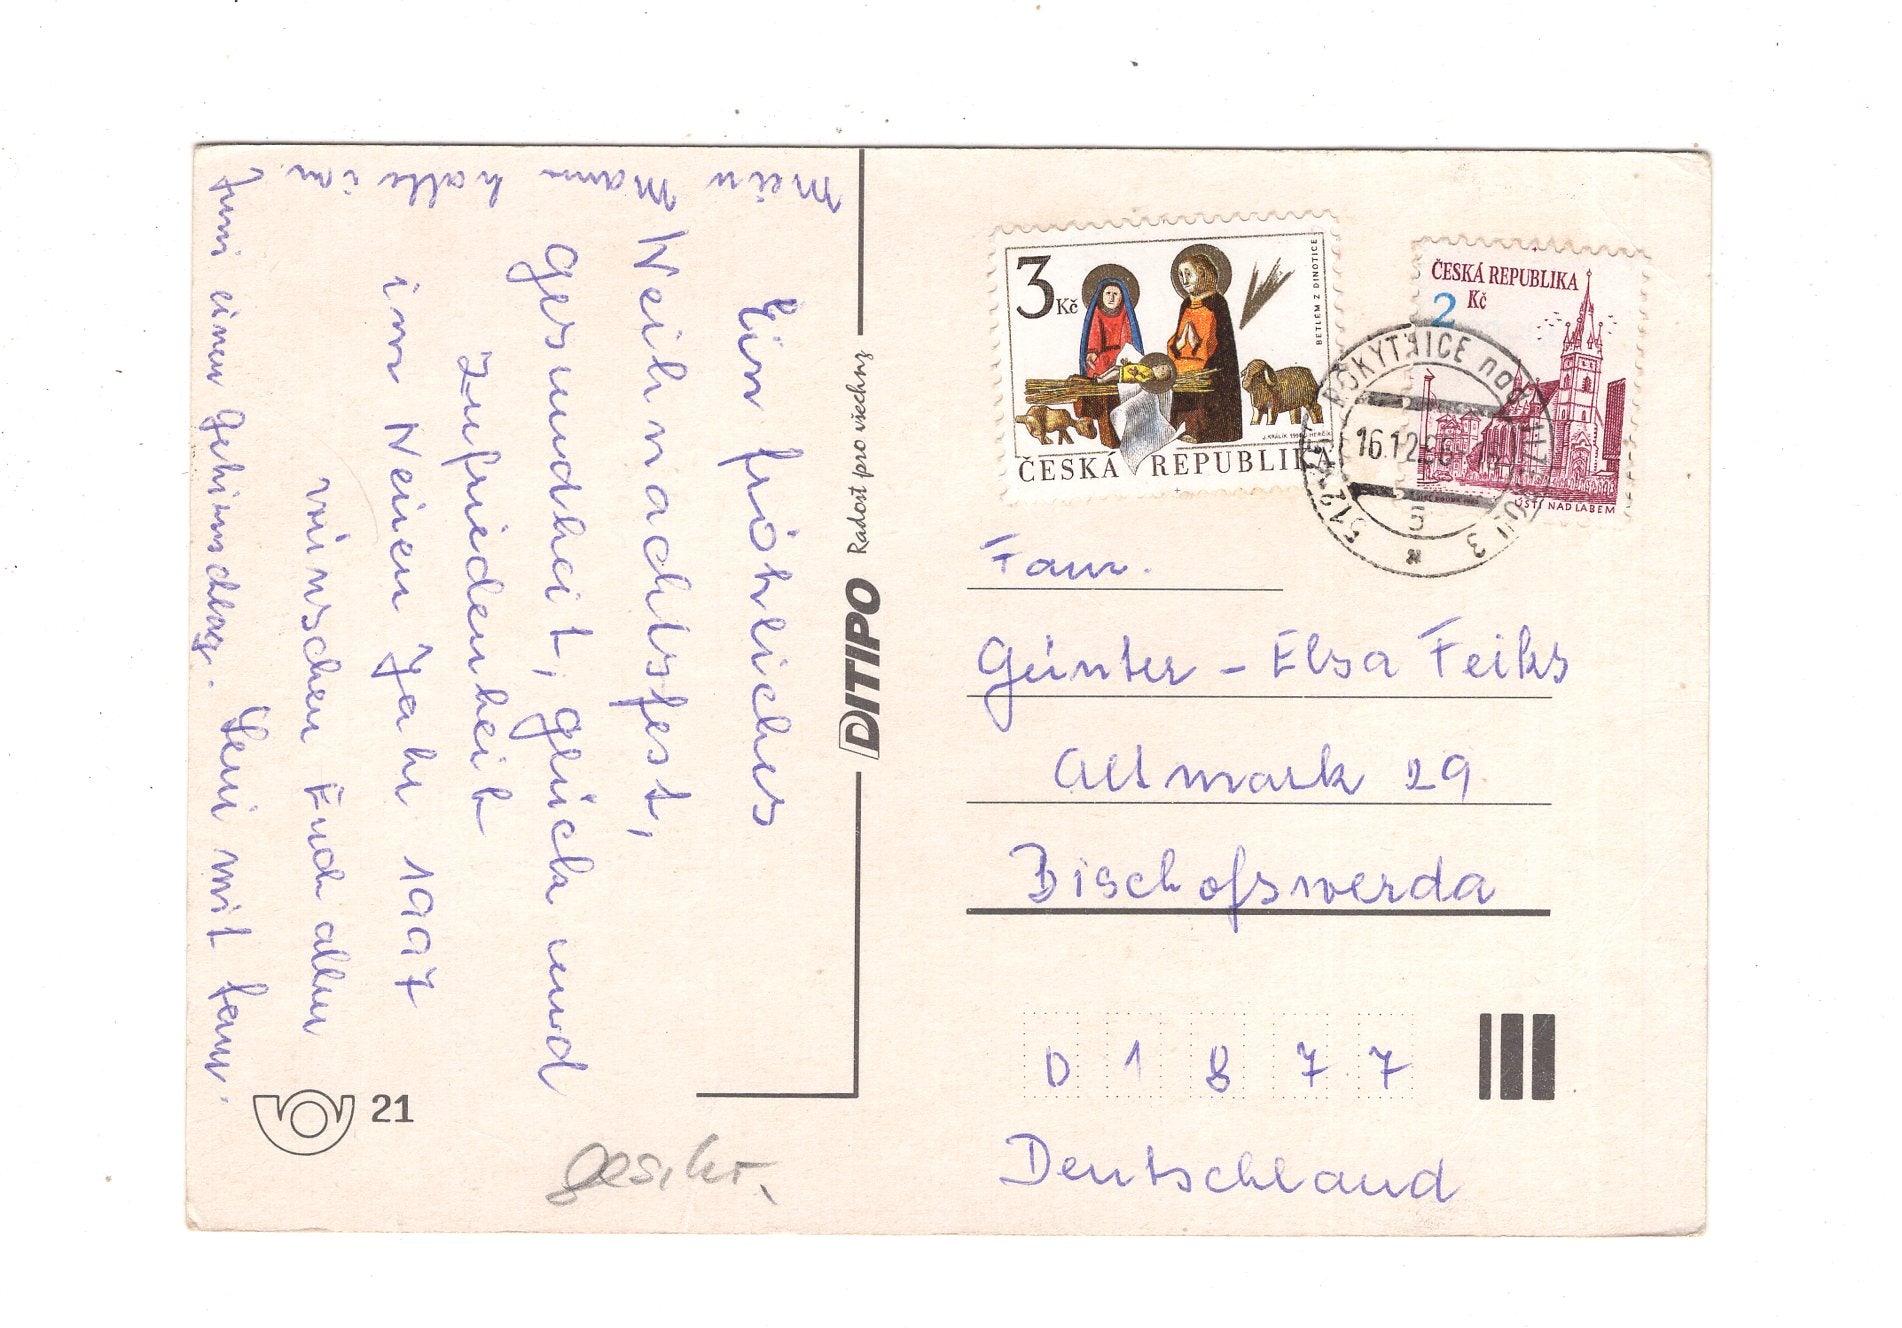 Ein fröhliches
Weihnachtsfest,
Gesundheit, Glück und
Zufriedenheit
im Neuen Jahr 1997
wünschen Euch allen
Leni mit Fam.
Mein Mann hatte im
Juni einen Gehirnschlag.
DITIPO Radost pro všechny
21
geschr.
3 Kč
BETLÉM Z DINOTICE
ČESKÁ REPUBLIKA
ČESKÁ REPUBLIKA
2 Kč
ÚSTÍ NAD LABEM
ROKYTNICE nad
16.12.96
5
Fam.
Günter - Elsa Feiks
Altmark 29
Bischofswerda
01877
Deutschland